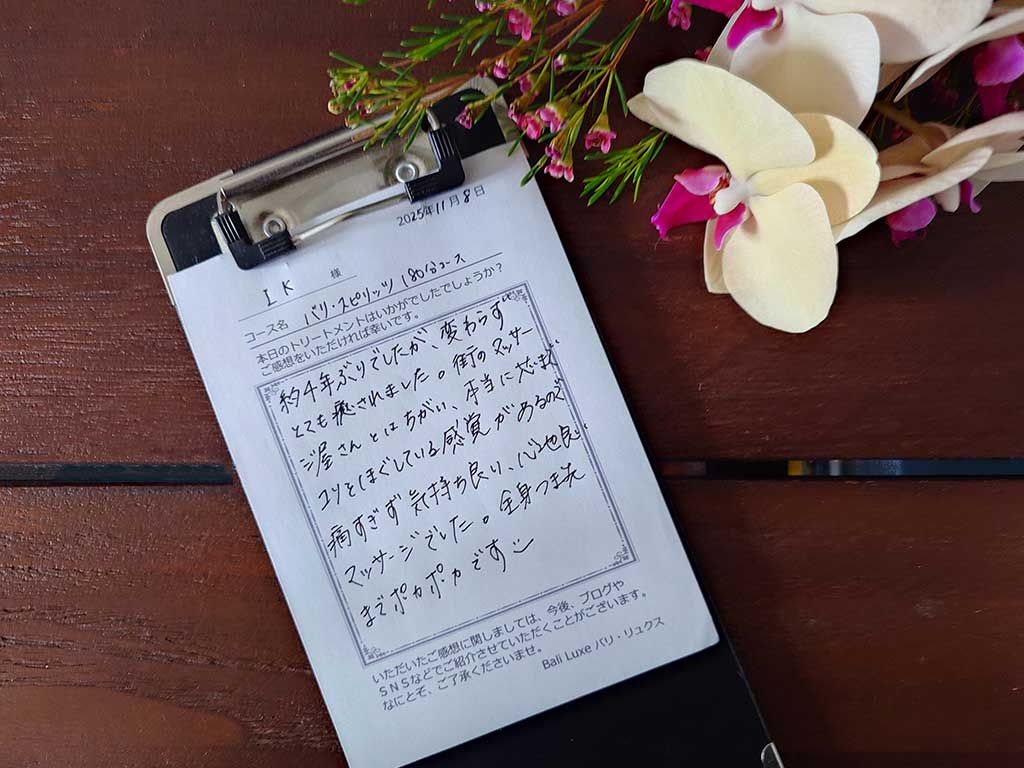 2025年11月8日
I K 様
コース名 バリ・スピリッツ 180分コース
本日のトリートメントはいかがでしたでしょうか?
ご感想をいただければ幸いです。
約4年ぶりでしたが、変わらず
とても癒されました。街のマッサー
ジ屋さんとはちがい、本当に大たまな
コリをほぐしている感覚があるので
痛すぎず気持ち良い、心地良い
マッサージでした。全身つま先
までポカポカです
いただいたご感想に関しましては、今後、ブログや
SNSなどでご紹介させていただくことがございます。
なにとぞ、ご了承くださいませ。
Bali Luxe バリ・リュクス